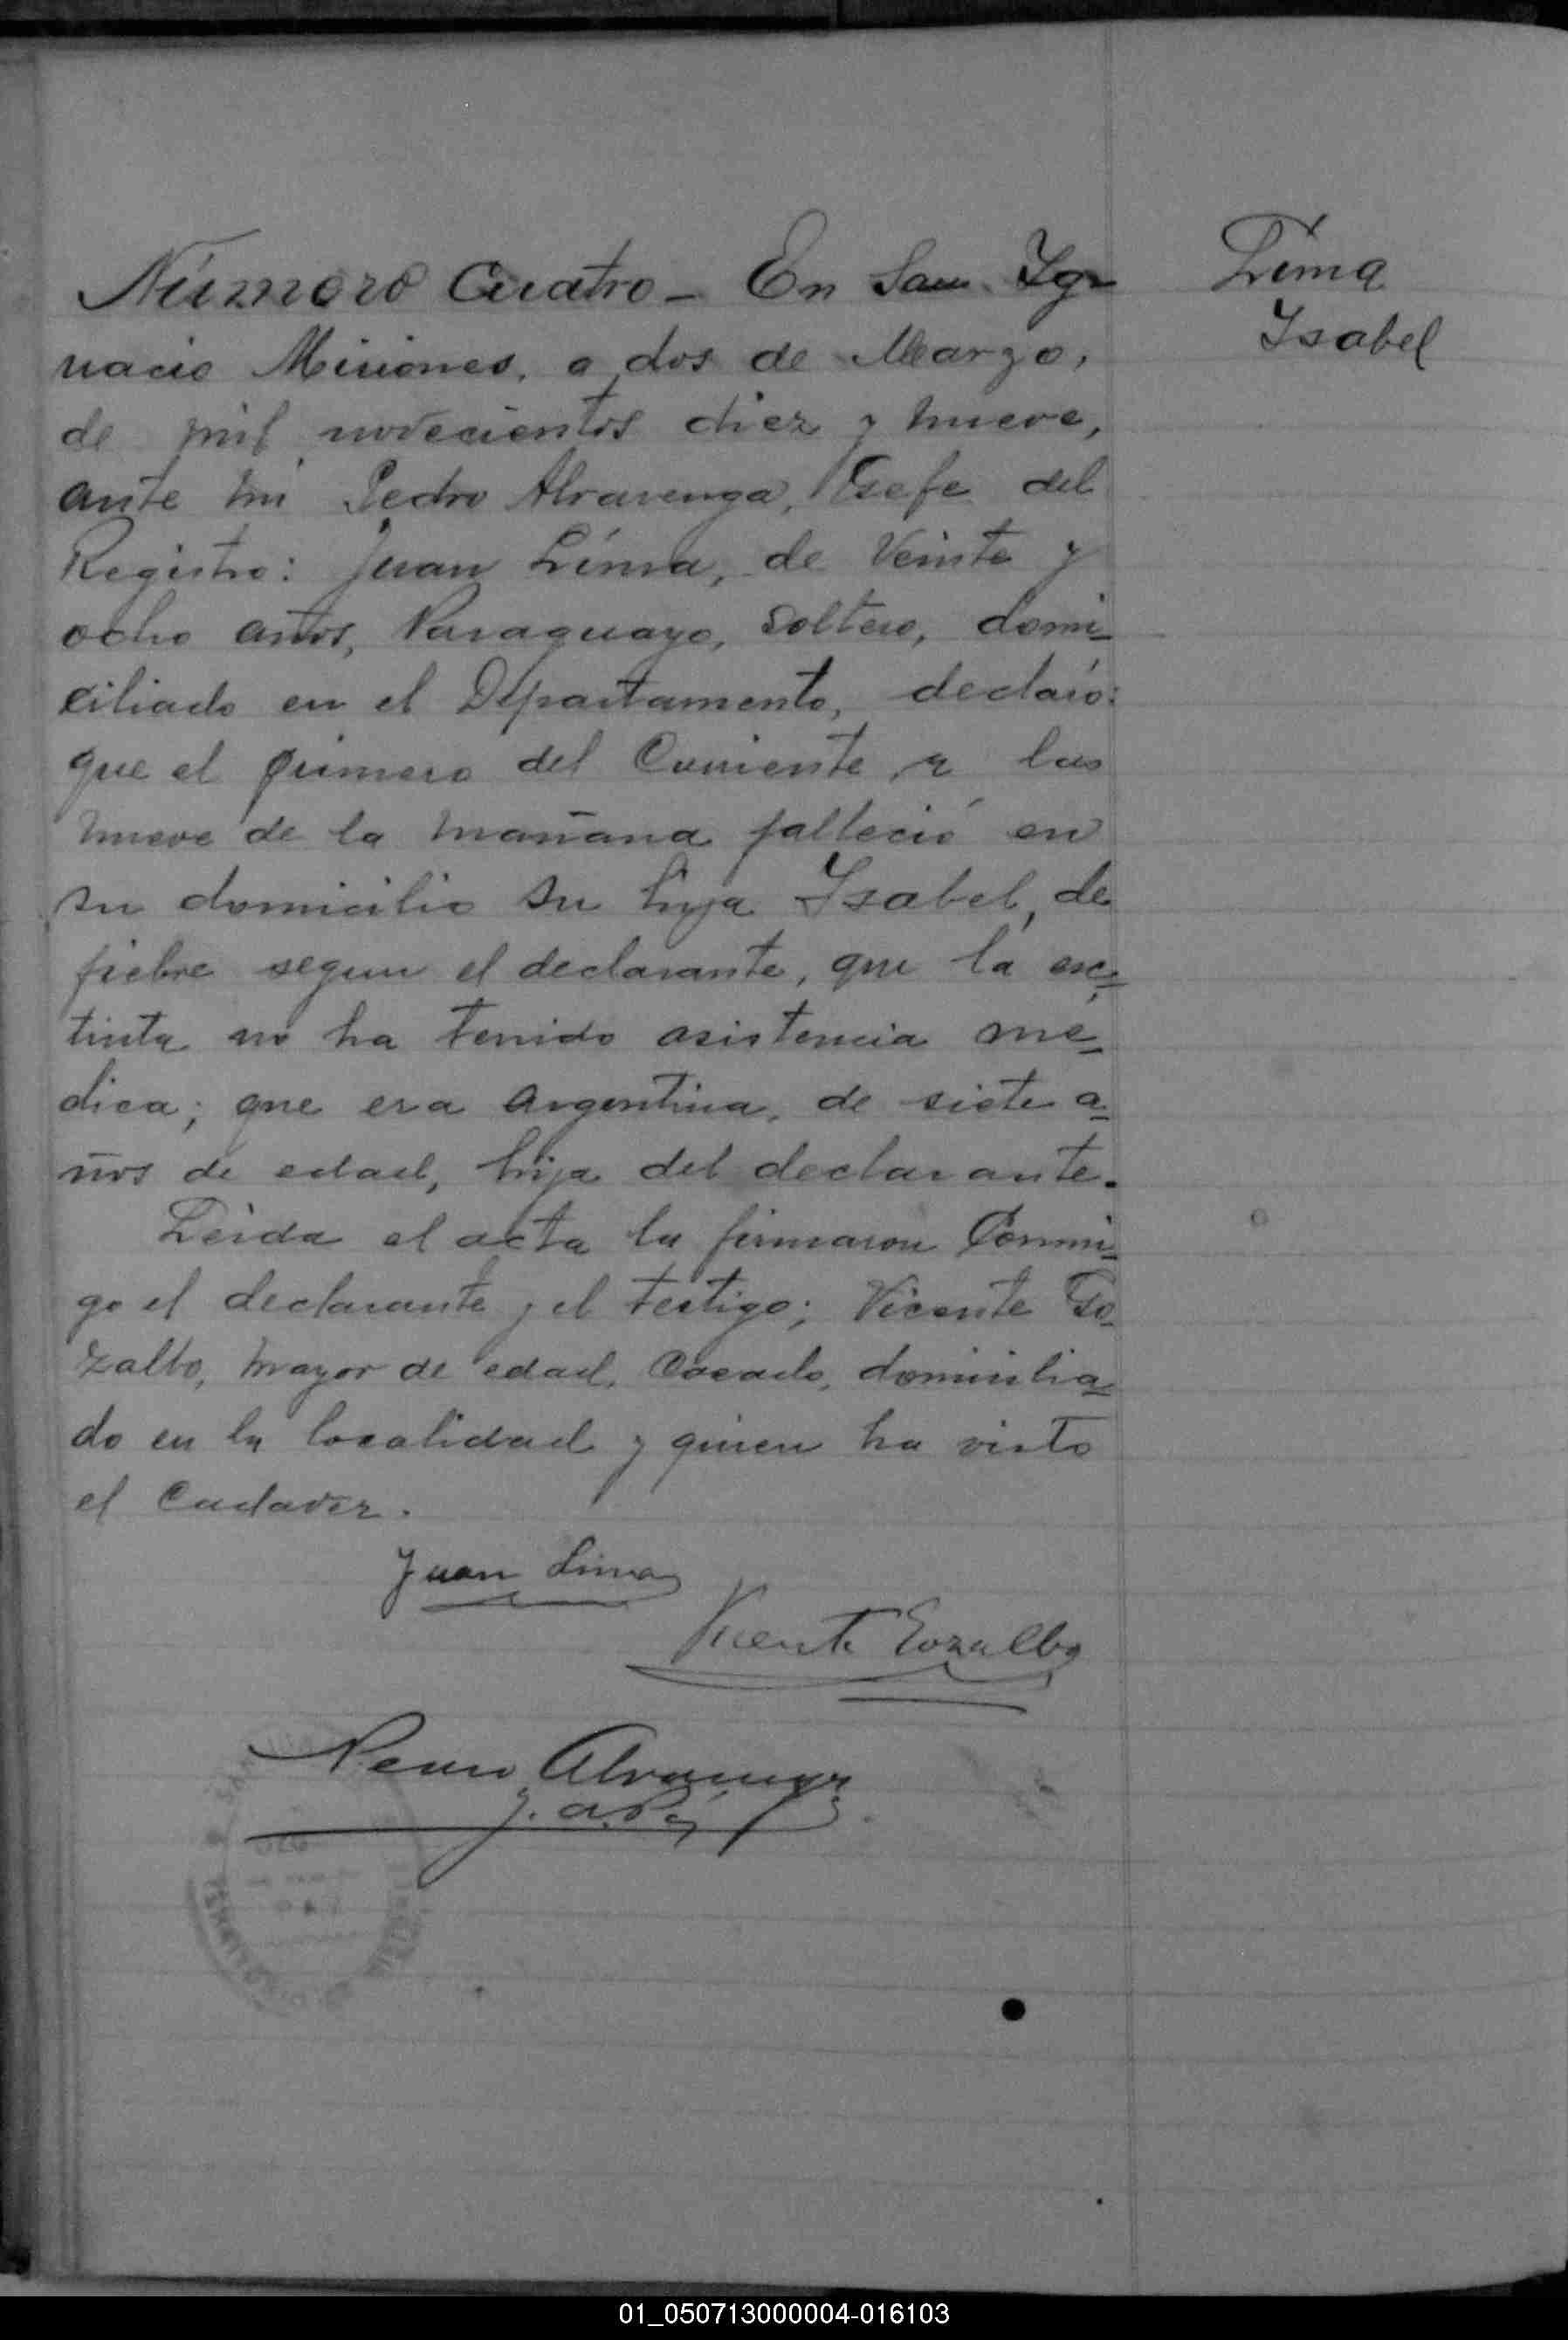 Número Cuatro - En San Ig-
nacio Misiones, a dos de Marzo,
de mil novecientos diez y nueve,
ante mi Pedro Alvarenga, Gefe del
Registro: Juan Líma, de Veinte y
ocho años, Paraguayo, Soltero, domi-
ciliado en el Departamento, declaró:
que el primero del Corriente a las
nueve de la mañana falleció en
su domicilio su hija Isabel, de
fiebre segun el declarante, que la esc-
tinta no ha tenido asistencia mé-
dica; que era argentina, de siete a-
ños de edad, hija del declarante.
Leida el acta la firmaron Conmi-
go el declarante y el testigo; Vicente Go-
zalbo, mayor de edad, Casado, domicilia-
do en la localidad y quien ha visto
el Cadaver.
Líma
Isabel
Juan Lima
Vicente Gozalbo
Pedro Alvarenga
SAN
01_050713000004-016103